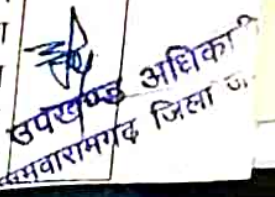 उपखण्ड अधिकारी
जमवारामगढ़ जिला ज